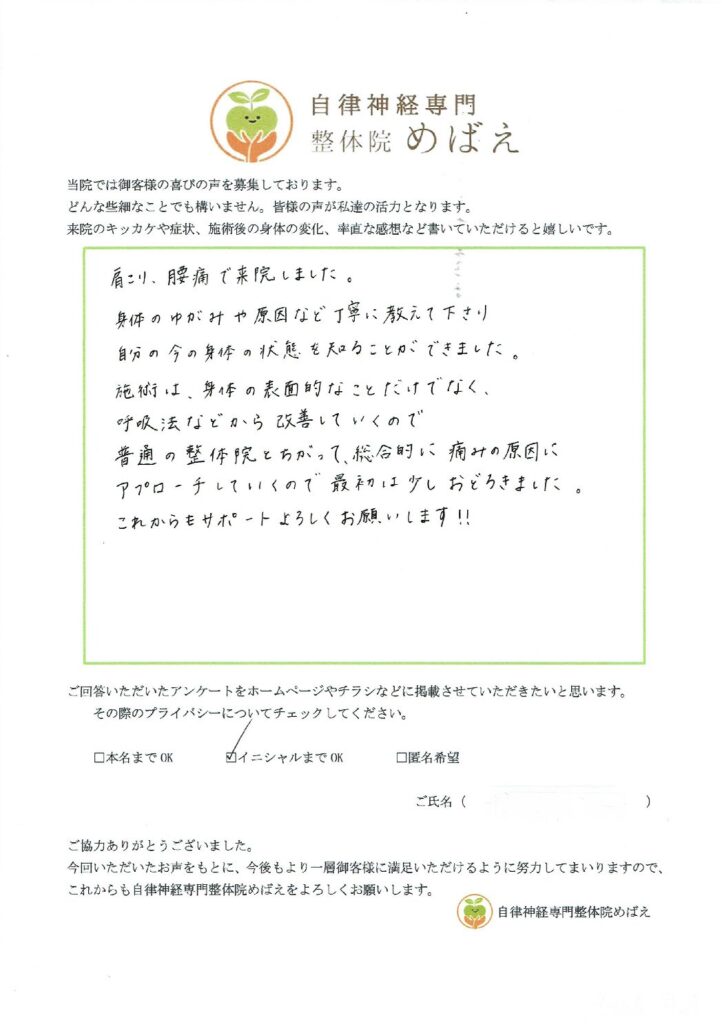 自律神経専門
整体院 めばえ
当院では御客様の喜びの声を募集しております。
どんな些細なことでも構いません。皆様の声が私達の活力となります。
来院のキッカケや症状、施術後の身体の変化、率直な感想など書いていただけると嬉しいです。
肩こり、腰痛で来院しました。
身体のゆがみや原因など丁寧に教えて下さり
自分の今の身体の状態を知ることができました。
施術は、身体の表面的なことだけでなく、
呼吸法などから改善していくので
普通の整体院とちがって、総合的に痛みの原因に
アプローチしていくので最初は少しおどろきました。
これからもサポートよろしくお願いします!!
ご回答いただいたアンケートをホームページやチラシなどに掲載させていただきたいと思います。
その際のプライバシーについてチェックしてください。
□本名までOK ☑イニシャルまでOK □匿名希望
ご氏名（ ）
ご協力ありがとうございました。
今回いただいたお声をもとに、今後もより一層御客様に満足いただけるように努力してまいりますので、
これからも自律神経専門整体院めばえをよろしくお願いします。
自律神経専門整体院めばえ